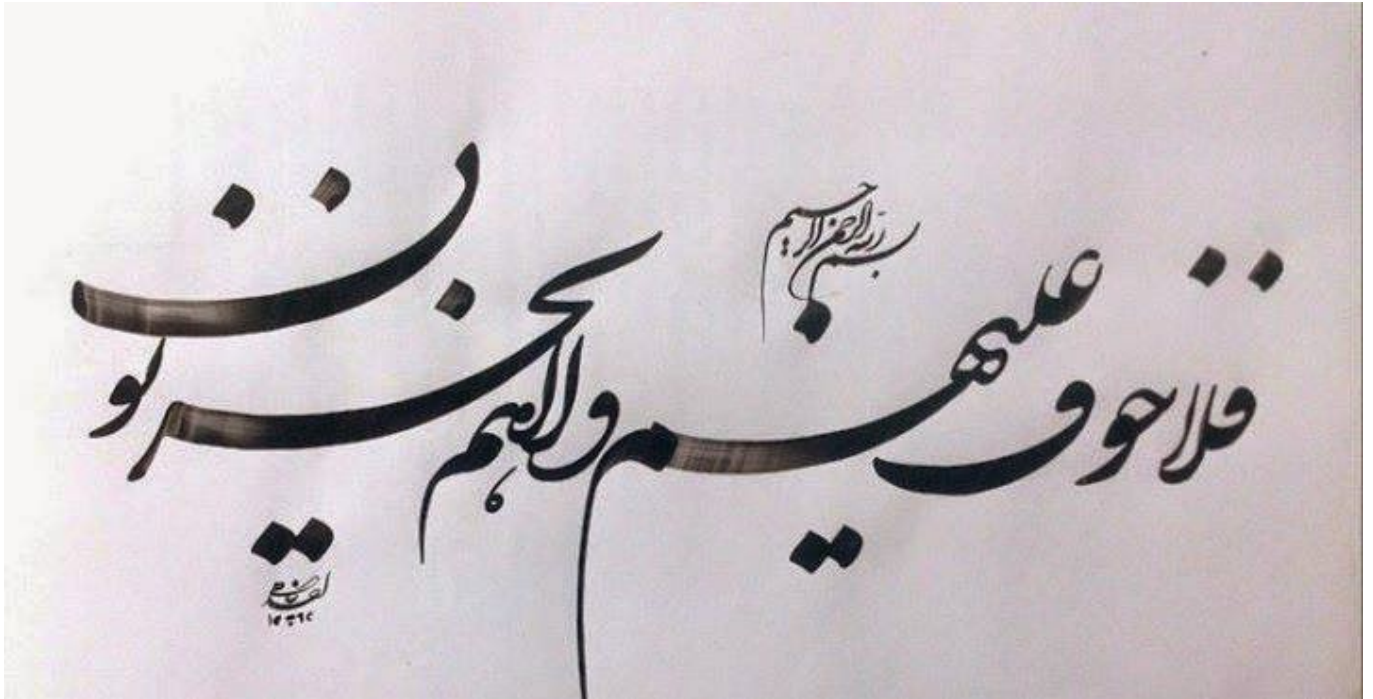 بسم الله الرحمن الرحیم
فلا خوف علیهم ولا هم یحزنون